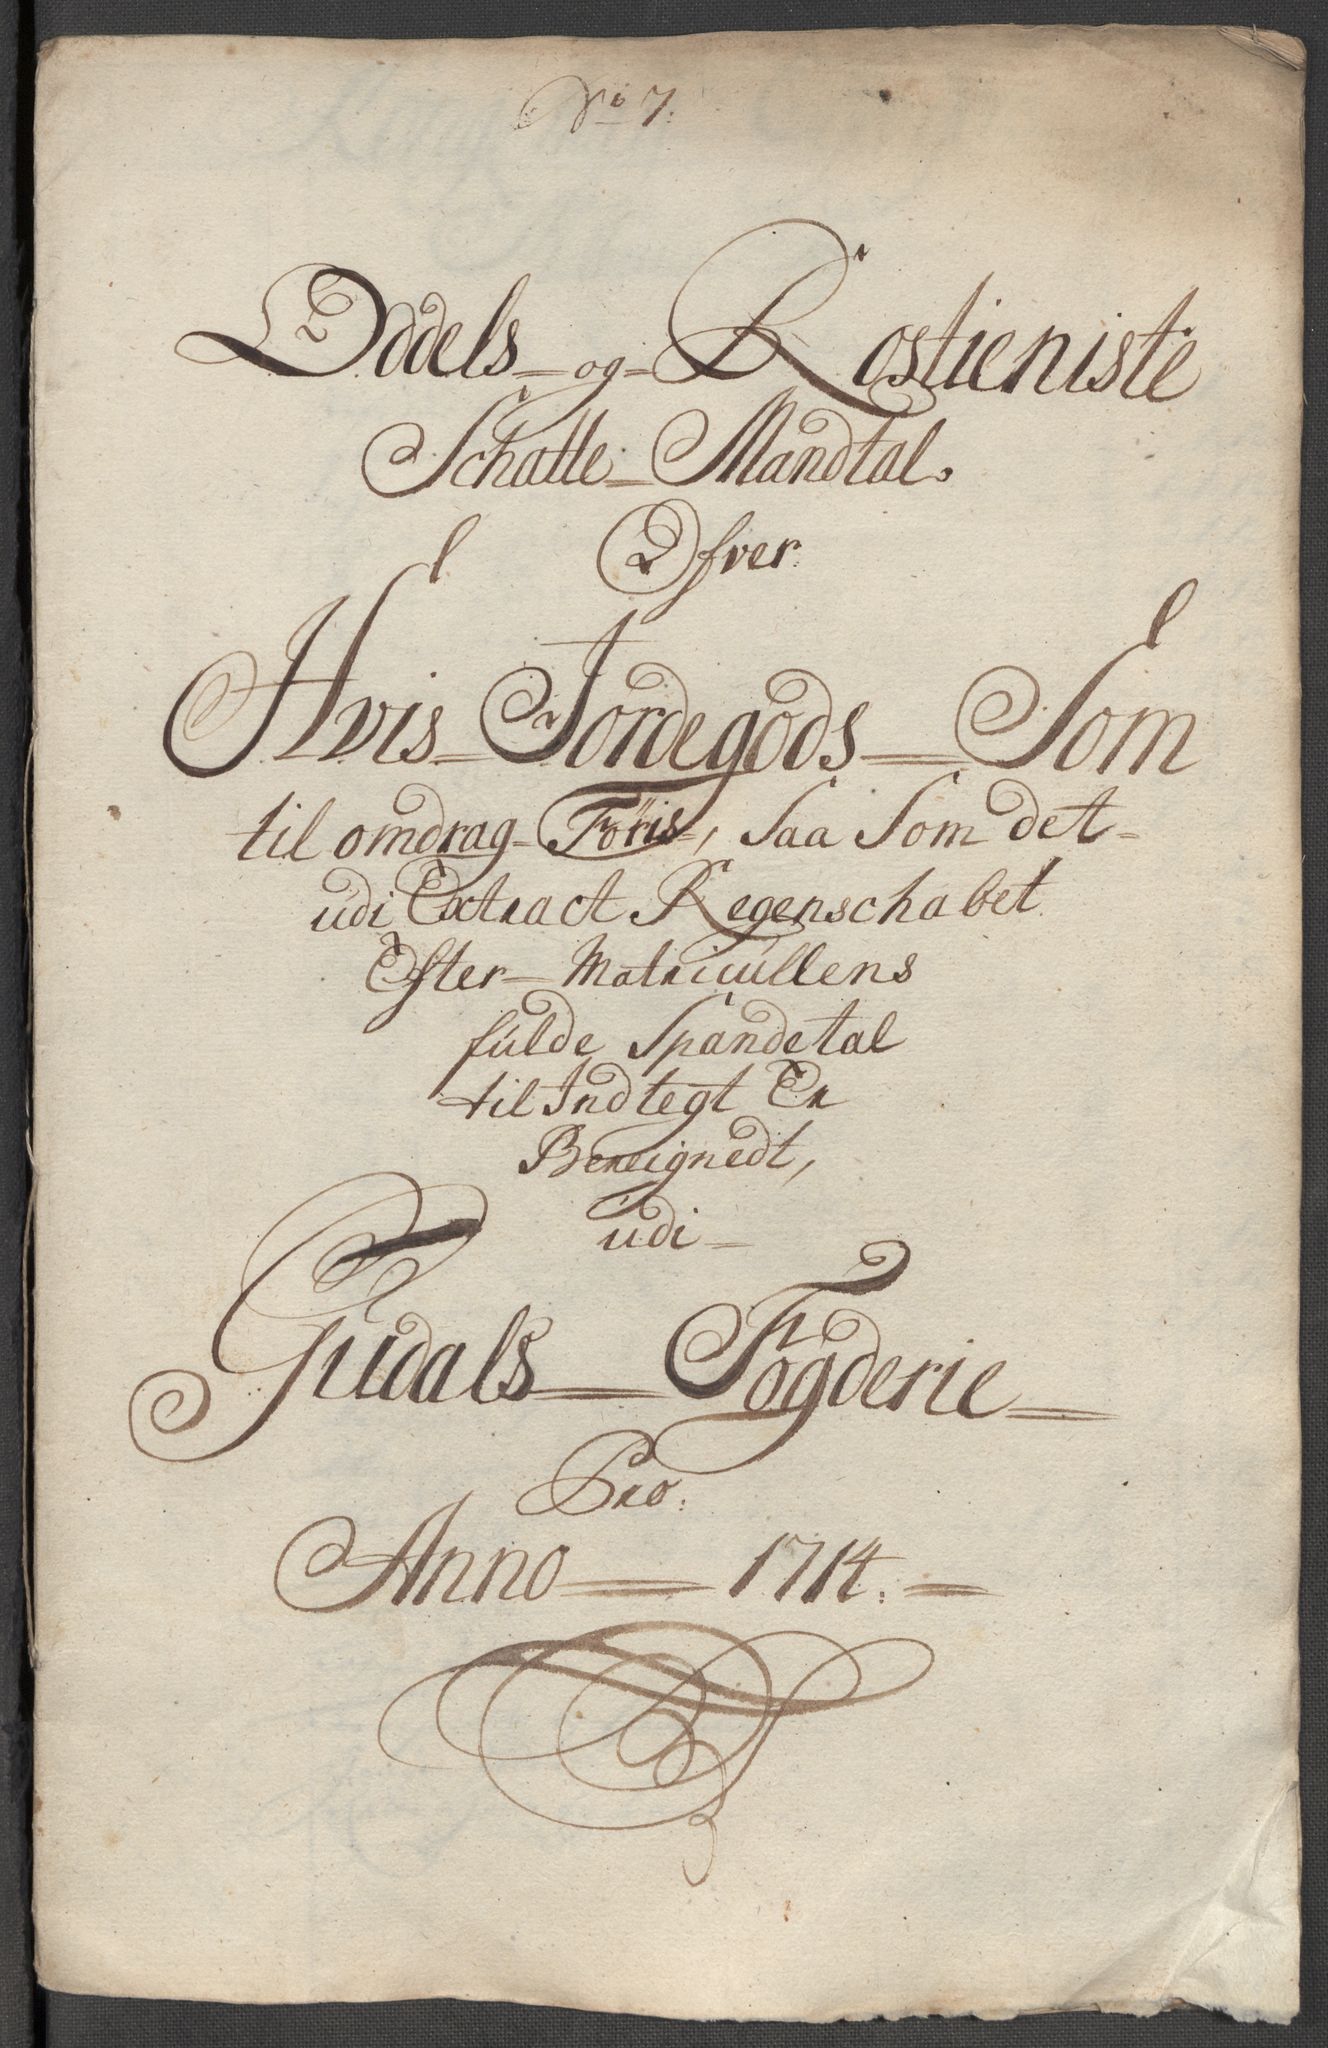 No 7.
Oddels og Rostieniste
Schatte Mandtal
Ofver
Hvis Jordegods Som
til omdrag Föris, Saa Som det
udi Extract Regenschabet
Efter Matricullens
fulde Spandetal
til Indtegt Er
Bereignedt,
udi
Gudals Fogderie
Pro.
Anno 1714.